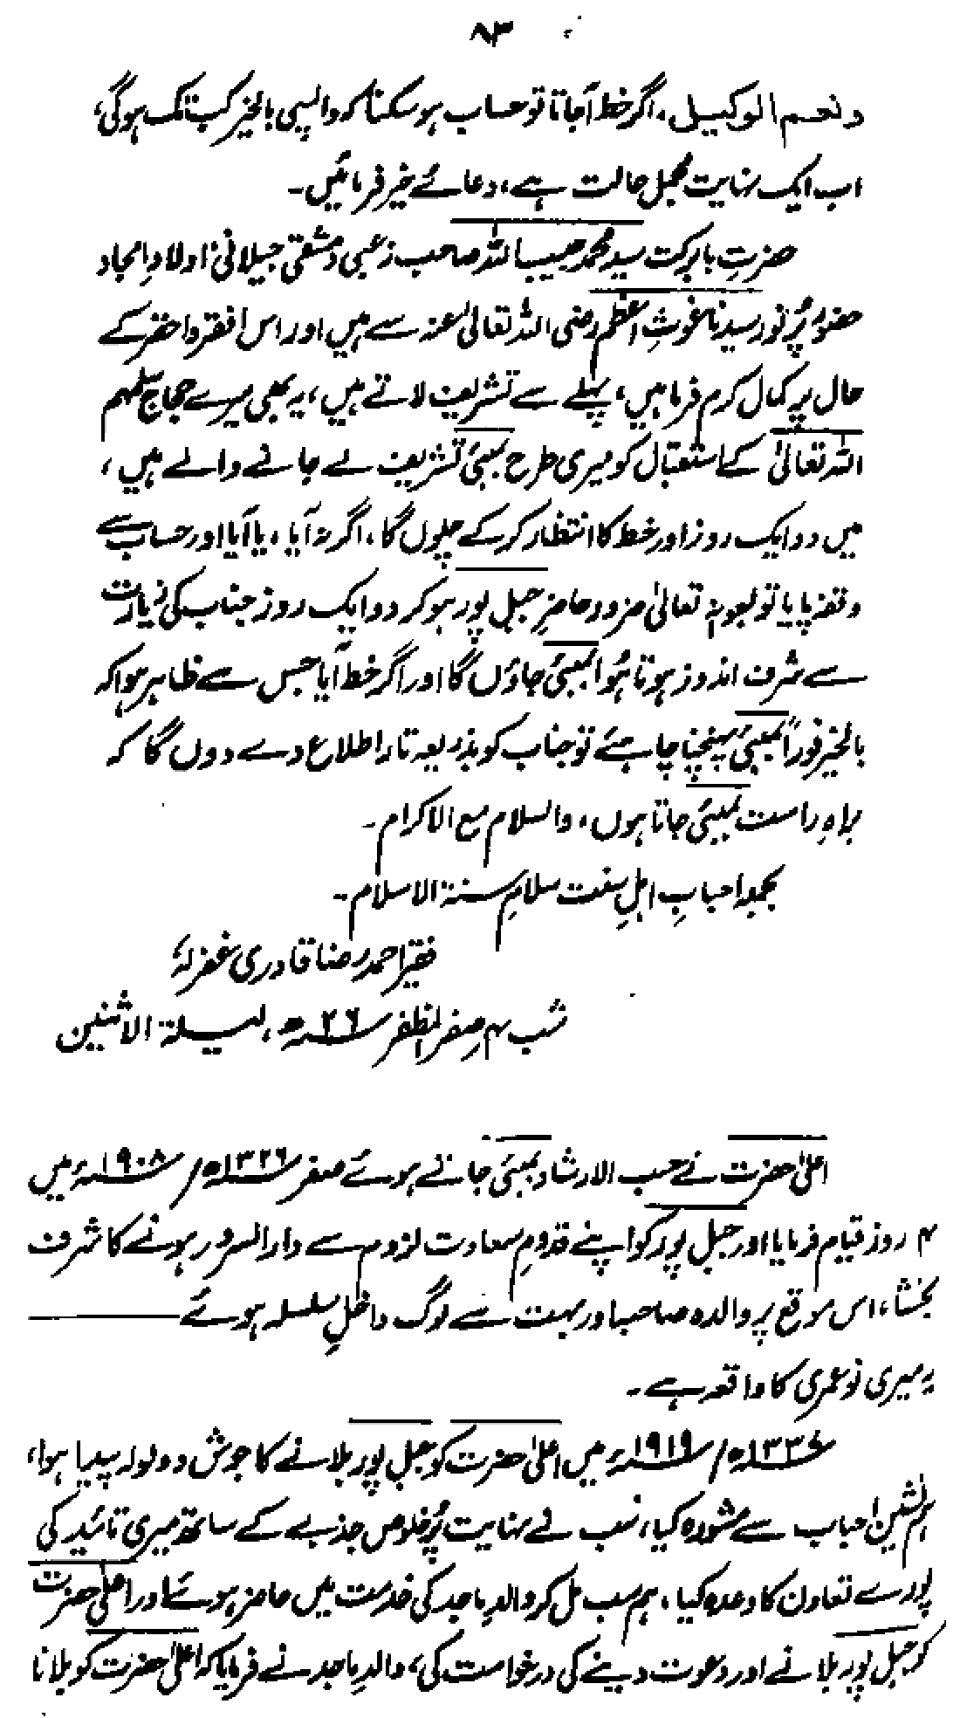 ۸۳
ونعم الوکیل، اگر خط آجاتا تو حساب ہوسکتا کہ واپسی بالخیر کب تک ہوگی،
اب ایک نہایت مجمل حالت ہے، دعائے خیر فرمائیں۔
حضرتِ بابرکت سید محمد حبیب اللہ صاحب زعبی دمشقی جیلانی اولادِ امجاد
حضور پُر نور سیدنا غوثِ اعظم رضی اللہ تعالیٰ عنہ سے ہیں اور اس افقر واحقر کے
حال پر کمال کرم فرما ہیں، پہلے سے تشریف لاتے ہیں، یہ بھی میرے حجاج سلمہم
اللہ تعالیٰ کے استقبال کو میری طرح بمبئی تشریف لے جانے والے ہیں،
میں دو ایک روز اور خط کا انتظار کرکے چلوں گا، اگر نہ آیا، یا آیا اور حساب سے
وقفہ پایا تو بعونہٖ تعالیٰ ضرور حاضرِ جبل پور ہوکر دو ایک روز جناب کی زیارت
سے شرف اندوز ہوتا ہُوا بمبئی جاؤں گا اور اگر خط آیا جس سے ظاہر ہوا کہ
بالخیر فوراً بمبئی پہنچنا چاہئے تو جناب کو بذریعہ تار اطلاع دے دوں گا کہ
براہِ راست بمبئی جاتا ہوں، والسلام مع الاکرام۔
بجملہ احبابِ اہلِ سنت سلامِ سنۃ الاسلام۔
فقیر احمد رضا قادری غفرلہٗ
شب ۴ صفر المظفر ۲۶ھ، لیلۃ الاثنین
اعلیٰ حضرت نے حسب الارشاد بمبئی جاتے ہوئے صفر ۱۳۲۶ھ/۱۹۰۸ء میں
۴ روز قیام فرمایا اور جبل پور کو اپنے قدومِ سعادت لزوم سے دارالسرور ہونے کا شرف
بخشا، اس موقع پر والدہ صاحبہ اور بہت سے لوگ داخلِ سلسلہ ہوئے
یہ میری نوعمری کا واقعہ ہے۔
۱۳۳۷ھ/۱۹۱۹ء میں اعلیٰ حضرت کو جبل پور بلانے کا جوش و ولولہ پیدا ہوا،
ہم نشین احباب سے مشورہ کیا، سب نے نہایت پُرخلوص جذبے کے ساتھ میری تائید کی
پورے تعاون کا وعدہ کیا، ہم سب مل کر والدِ ماجد کی خدمت میں حاضر ہوئے اور اعلیٰ حضرت
کو جبل پور بلانے اور دعوت دینے کی درخواست کی، والدِ ماجد نے فرمایا کہ اعلیٰ حضرت کو بلانا